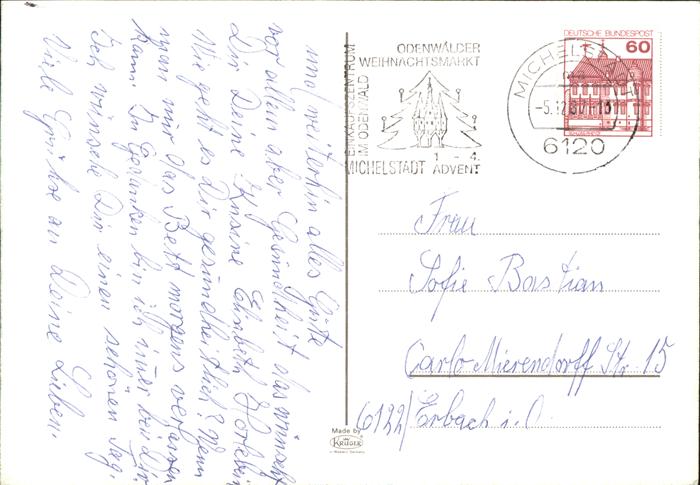 und weiterhin alles Gute
vor allem aber Gesundheit das wünscht
Dir Deine Kusine Elisabeth
Wie geht es Dir gesundheitlich? Wenn
man nur das Bett morgens verlassen
kann. In Gedanken bin ich immer bei Dir
Ich wünsche Dir einen schönen Tag.
Viele Grüße an Deine Lieben.
EINKAUFSZENTRUM
IM ODENWALD
MICHELSTADT
ODENWÄLDER
WEIHNACHTSMARKT
1. - 4.
ADVENT
MICHELSTADT
6120
DEUTSCHE BUNDESPOST
60
Frau
Sofie Bastian
Carlo Mierendorff Str. 15
6122/Erbach i. O.
Made by
KRÜGER